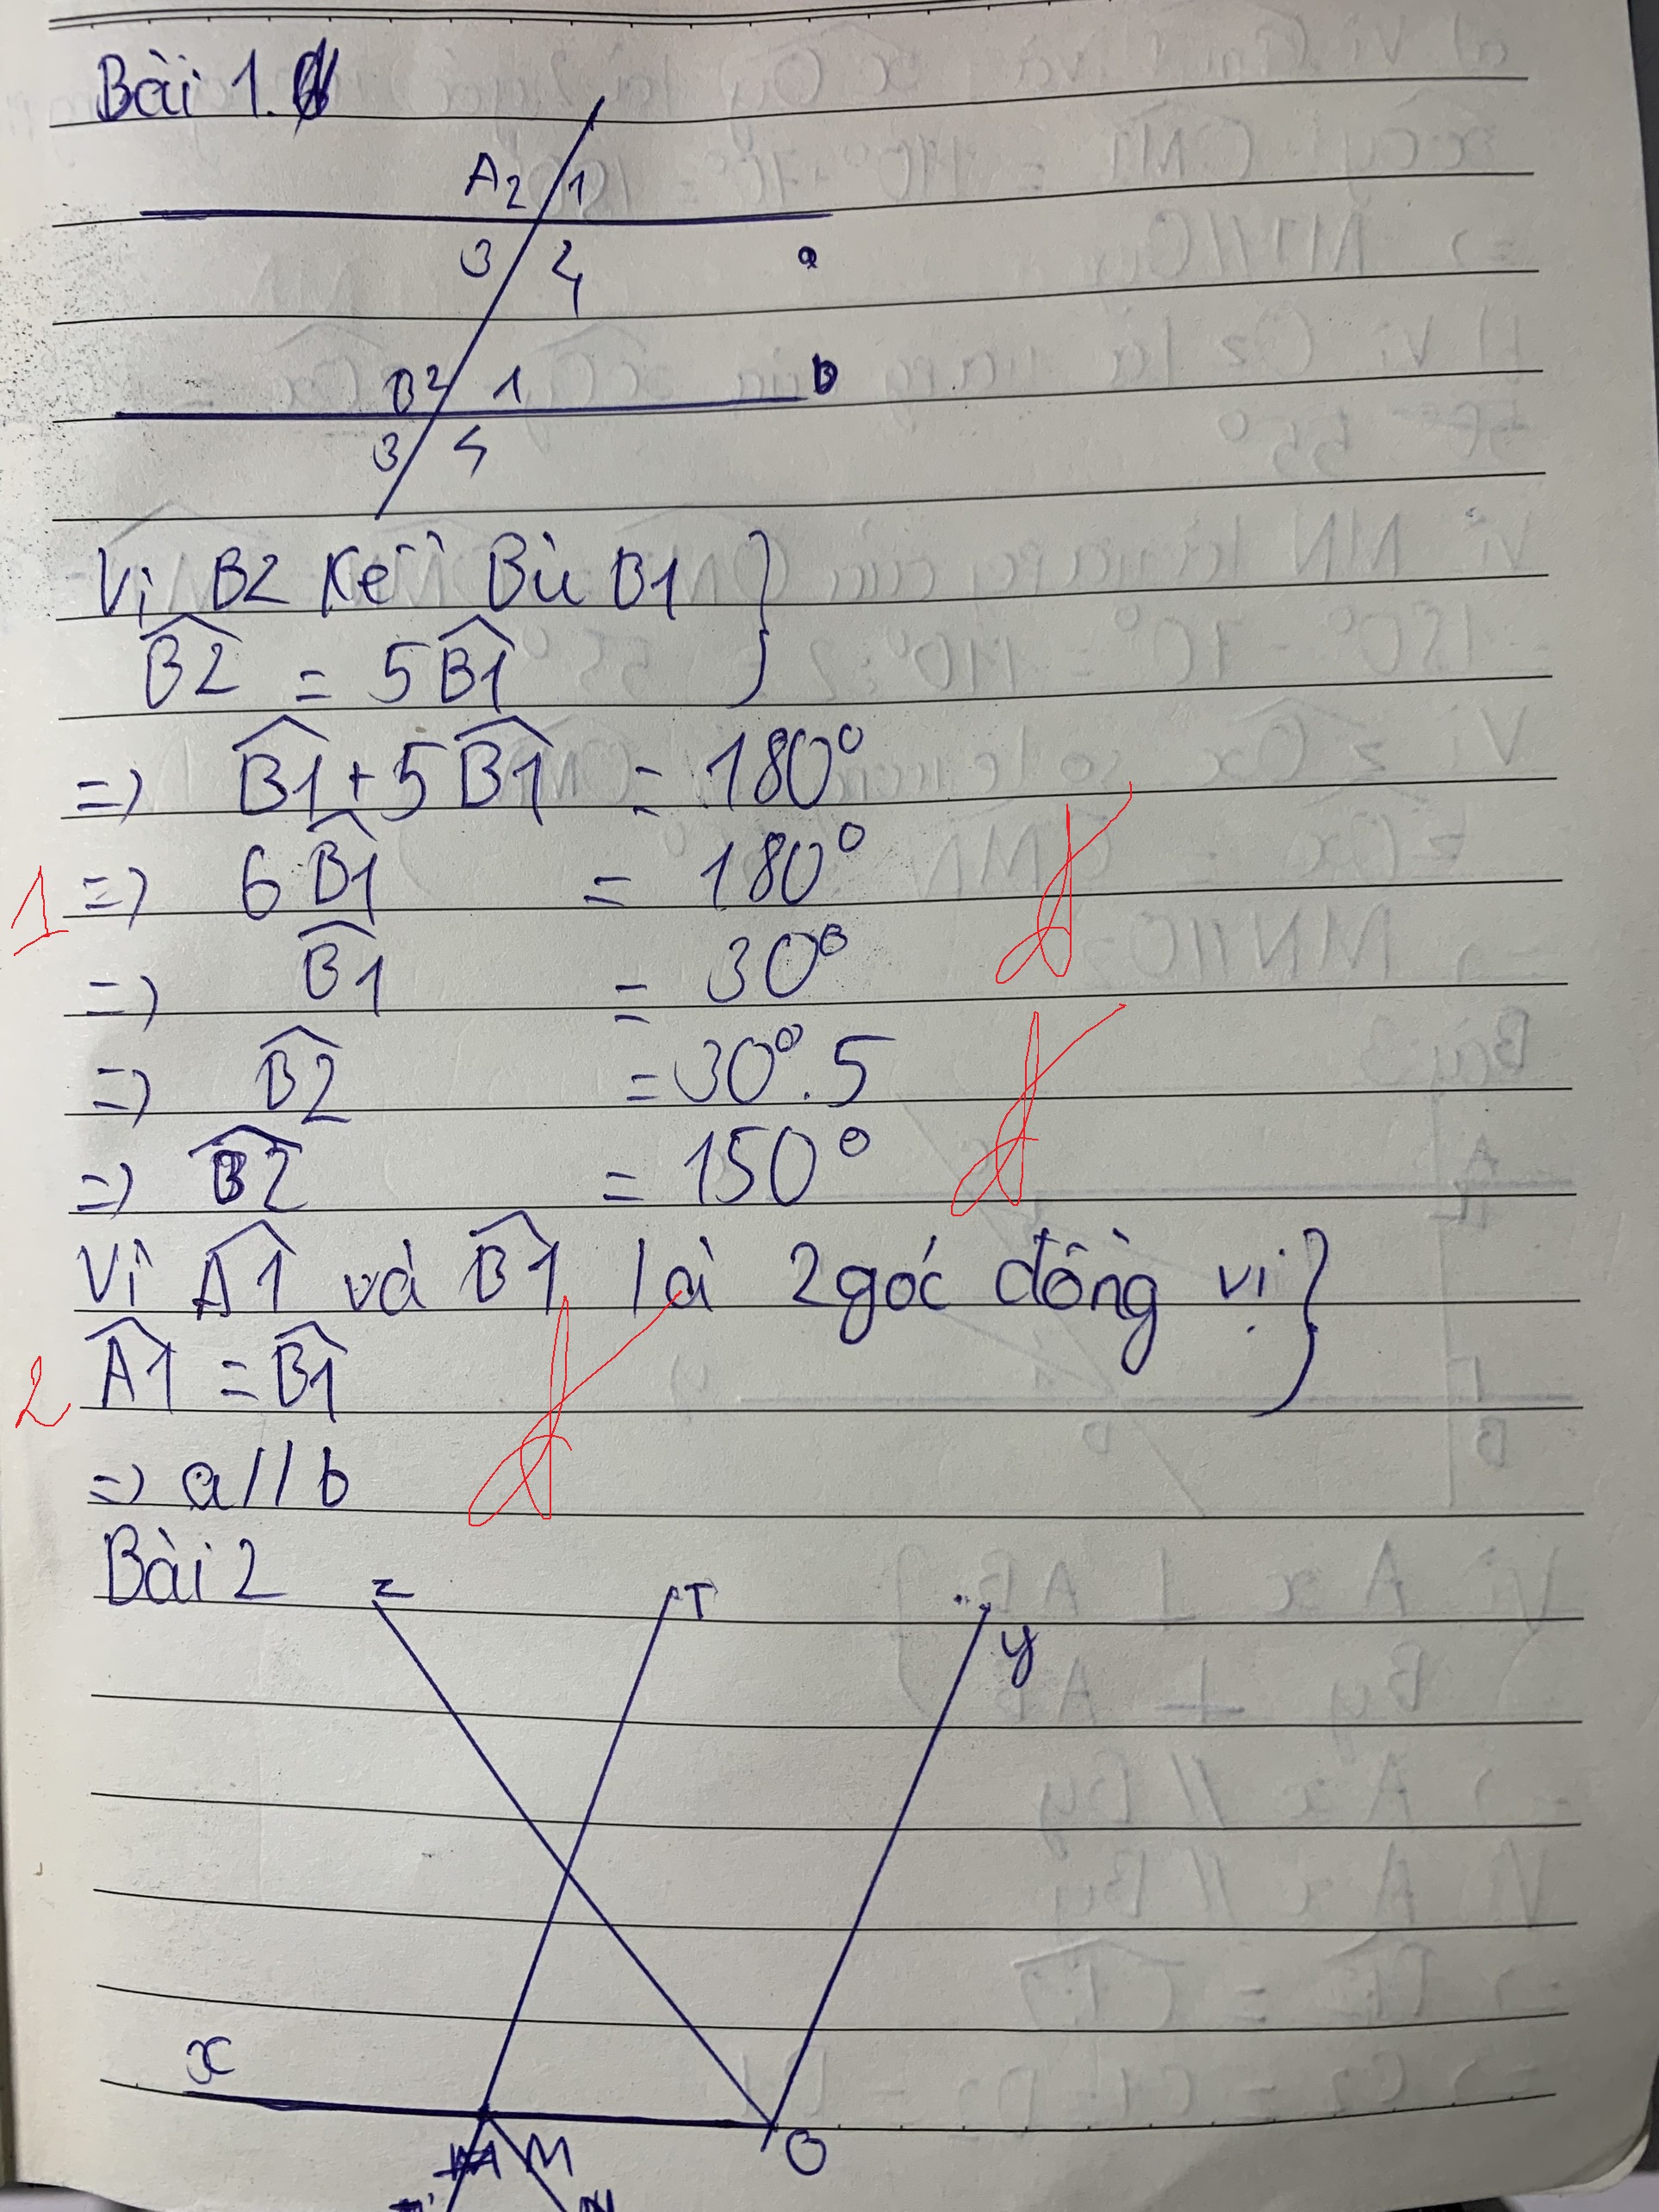 Bài 1.
A2 1
3 4 a
B2 1 b
3 4
Vì B2 kề Bù B1
B2 = 5B1
=> B1 + 5B1 = 180°
1 => 6B1 = 180°
=> B1 = 30°
=> B2 = 30°.5
=> B2 = 150°
Vì A1 và B1 là 2 góc đồng vị
2 A1 = B1
=> a//b
Bài 2 z T y
x
M O